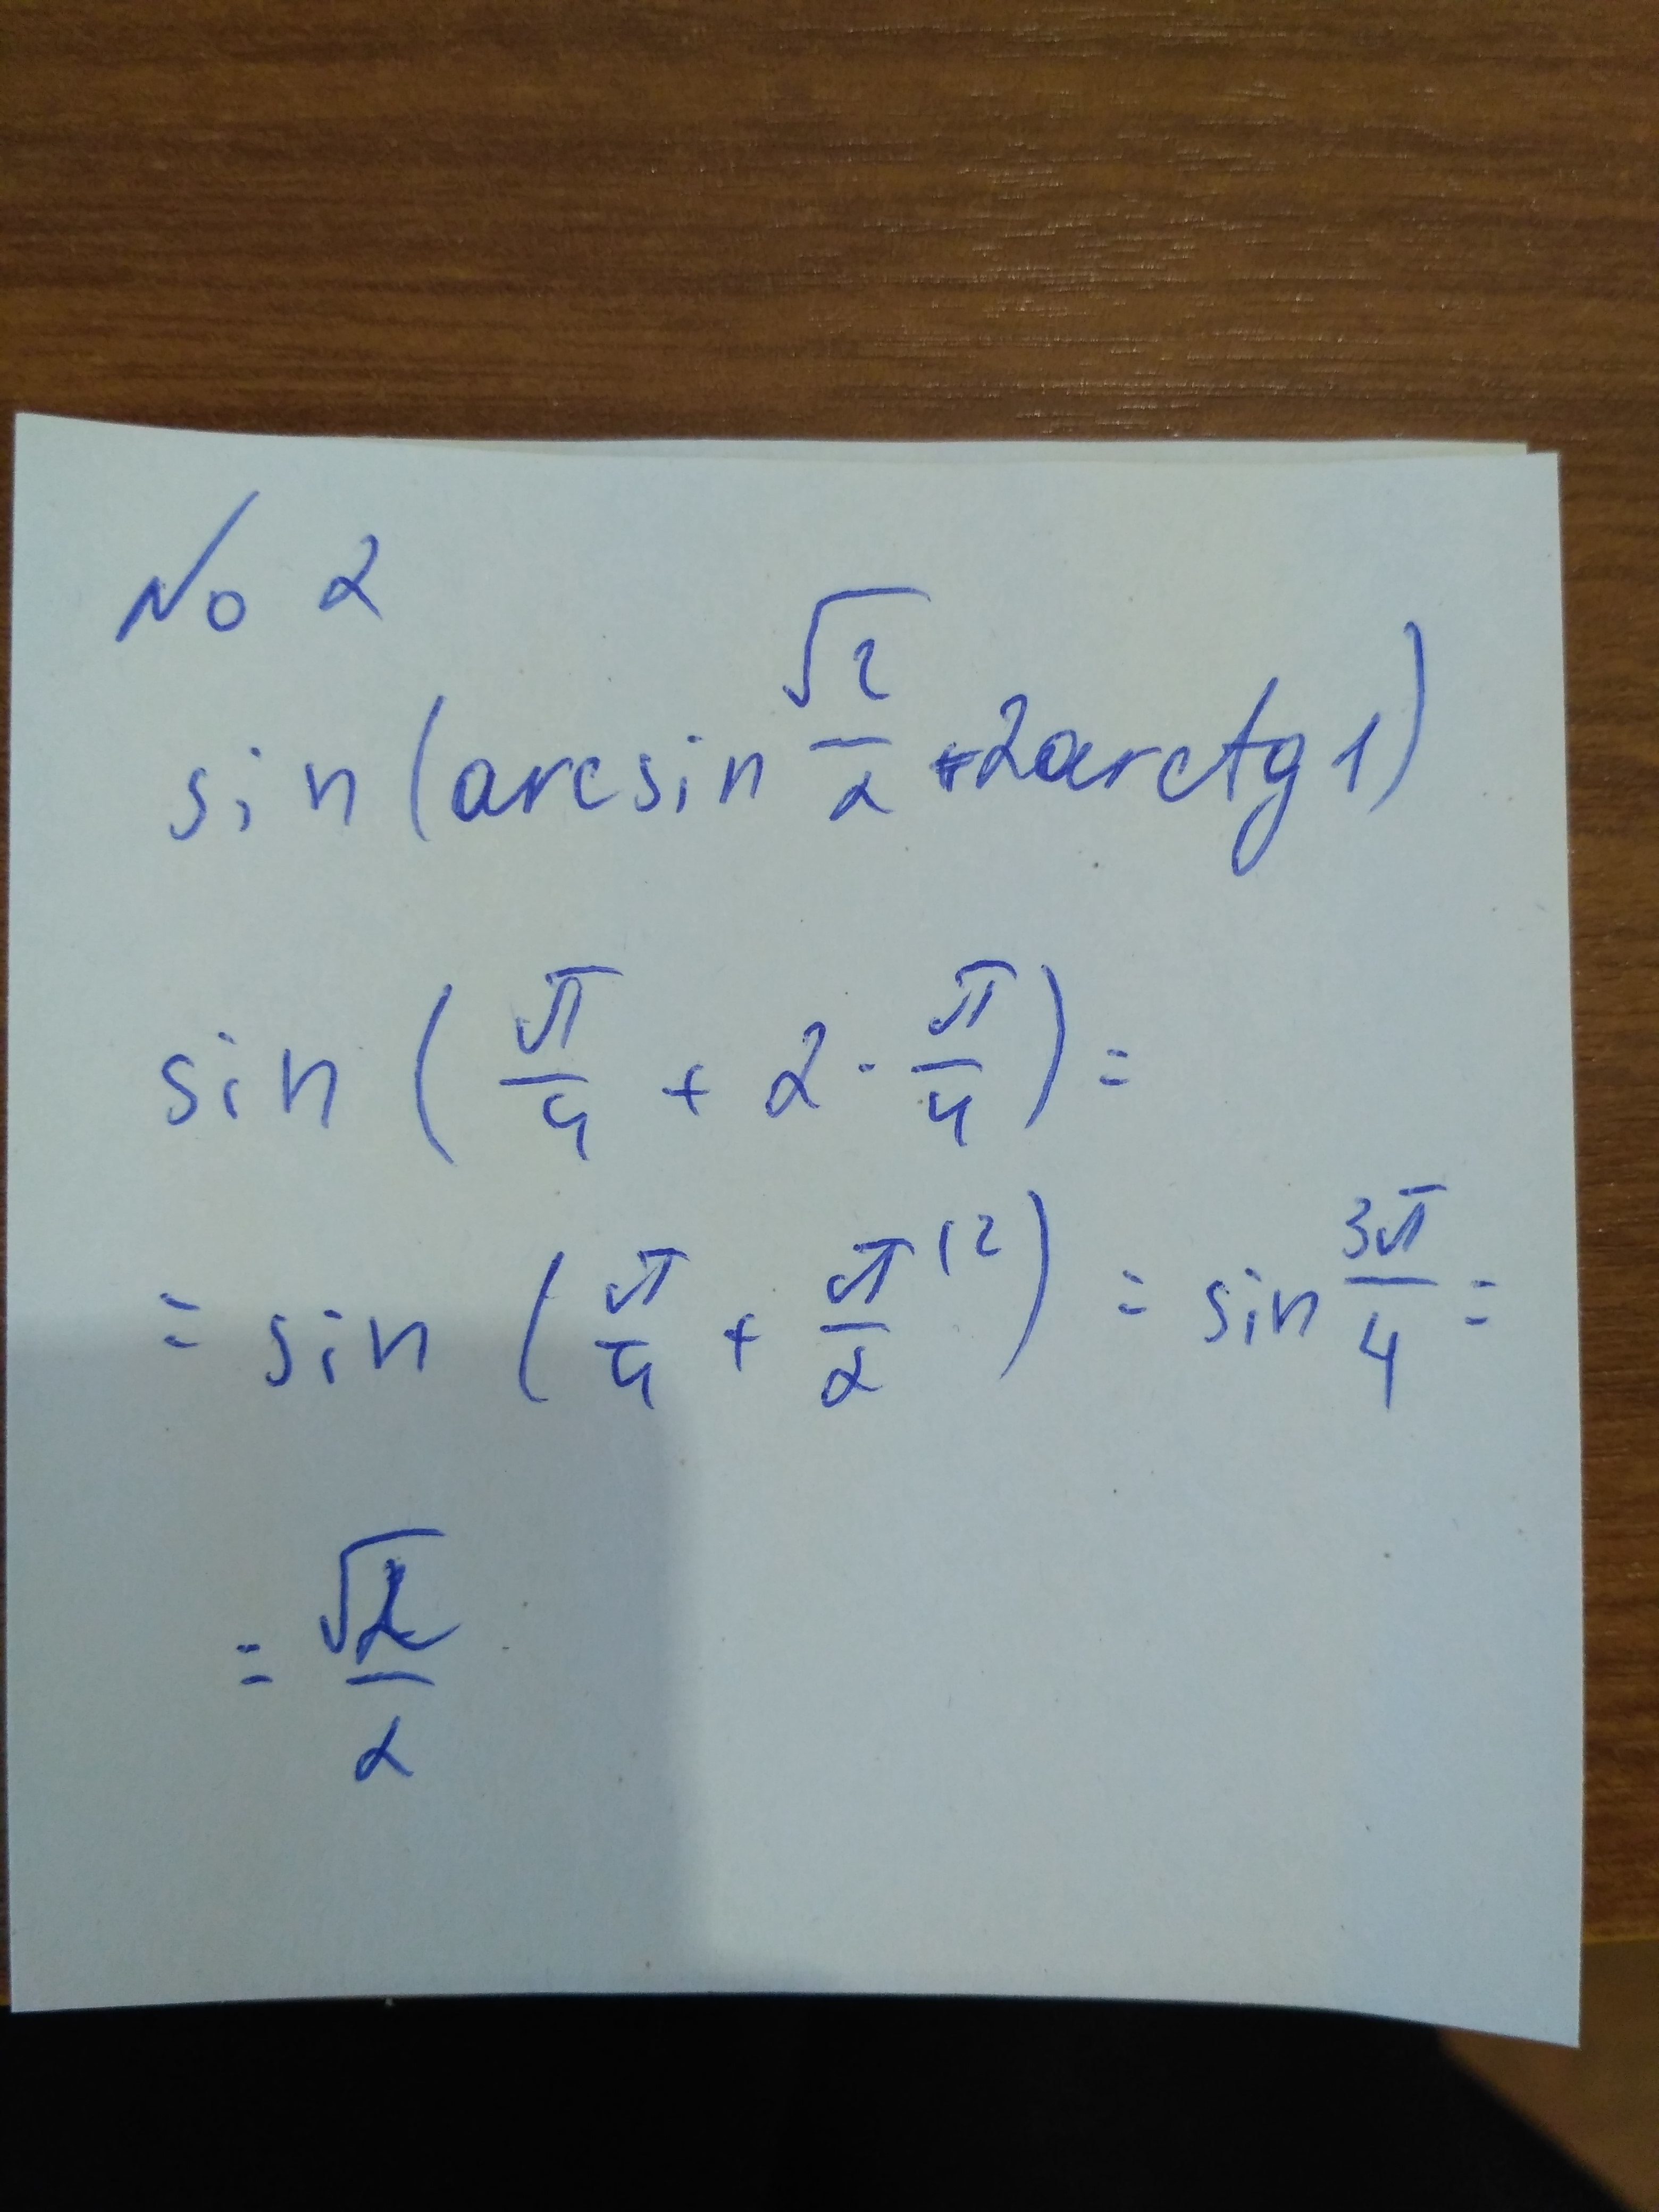 № 2
sin(arcsin √2/2 + 2arctg 1)
sin (π/4 + 2 · π/4) =
= sin (π/4 + π/2 ⁽²) = sin 3π/4 =
= √2/2